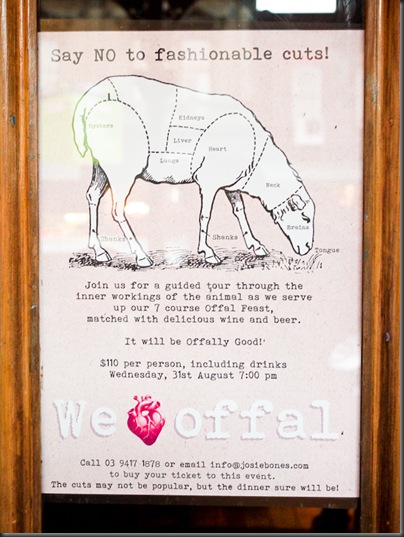 Say NO to fashionable cuts!
Oysters
Kidneys
Liver
Heart
Lungs
Neck
Brains
Shanks
Shanks
Tongue
Join us for a guided tour through the
inner workings of the animal as we serve
up our 7 course Offal Feast,
matched with delicious wine and beer.
It will be Offally Good!
$110 per person, including drinks
Wednesday, 31st August 7:00 pm
We offal
Call 03 9417 1878 or email info@josiebones.com
to buy your ticket to this event.
The cuts may not be popular, but the dinner sure will be!